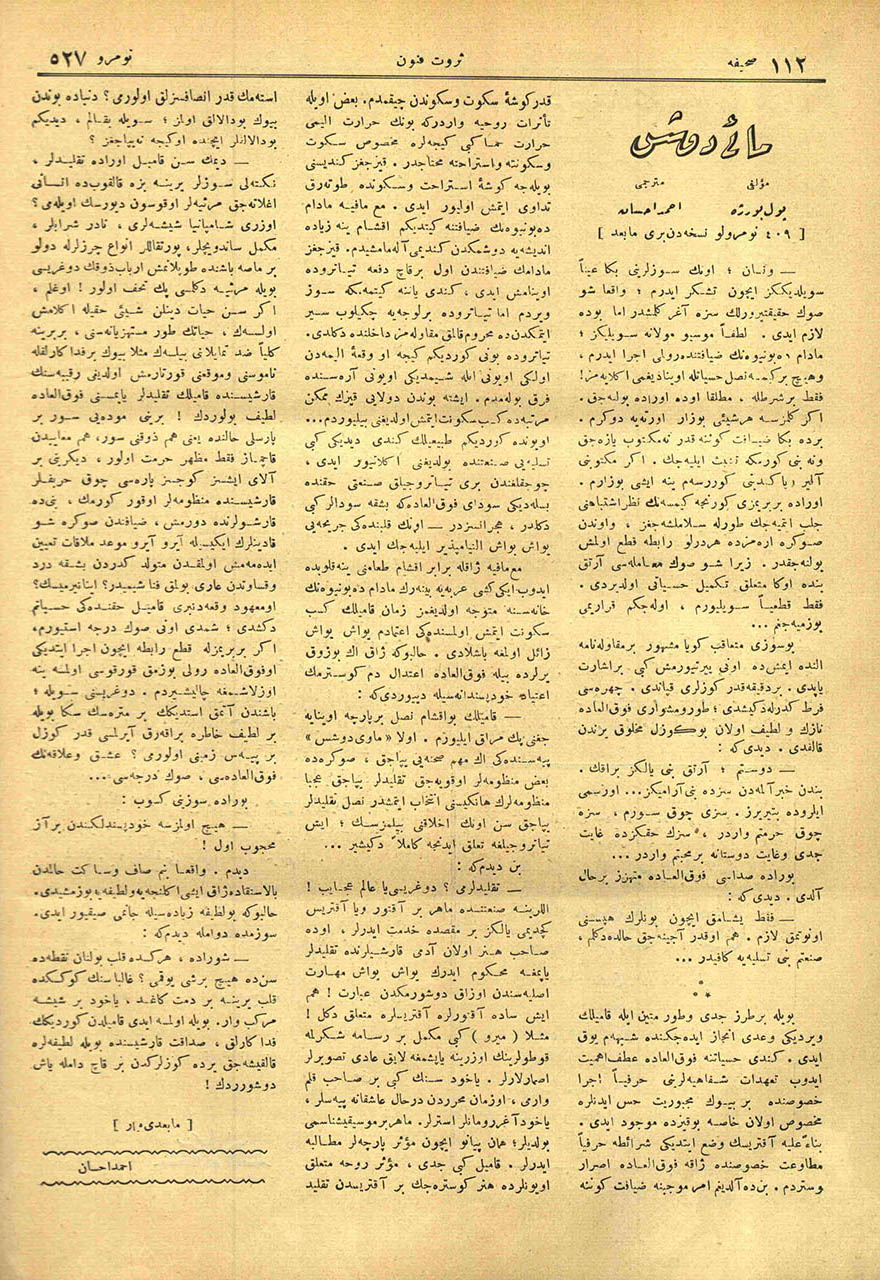 صحيفه ١١٢
ثروت فنون
نومرو ٥٢٧
مائی دوشس
مؤلفی
مترجمی
پول بورژه
احمد احسان
[ ٤٠٩ نومرولو نسخه‌دن بری مابعد ]
— ونسان ؛ اونك سوزلرینی بكا عیناً
سویلدیككز ایچون تشكر ایدرم ؛ واقعا شو
صوك حقیقتپرورلك سزه آغر كلشدر اما بوده
لازم ایدی . لطفاً موسیو مولانه سویلیكز ؛
مادام ده‌بونیوه‌نك ضیافتنده رولی اجرا ایدرم ،
وهیچ بر كیمسه نصل حسیاتله اوینادیغمی اكلایه‌مز!
فقط بر شرطله ، مطلقا اوده اوراده بولنه‌جق .
اكر كلمزسه هرشیئی بوزار اورته‌یه دوكرم .
برده بكا ضیافت كوننه قدر نه‌مكتوب یازه‌جق
ونه بنی كورمكه تشبث ایلیه‌جك . اكر مكتوبنی
آلیر یاكندینی كوررسه‌م ینه ایشی بوزارم .
اوراده بربریمزی كورنجه كیمسه‌نك نظر اشتباهنی
جلب ایتمیه‌جك طورله سلاملشه‌جغز ، واوندن
صوكره اره‌مزده هردرلو رابطه قطع اولمش
بولنه‌جقدر . زیرا شو صوك معامله‌سی آرتق
بنده اوكا متعلق تكمیل حسیاتی اولدیردی .
فقط قطعیاً سویلیورم ، اوله‌جكم قراریمی
بوزمیه‌جغم ...
بوسوزی متعاقب كویا مشهور بر مقاوله‌نامه
النده ایمش‌ده اونی ییرتیورمش كبی بر اشارت
یاپدی . بر دقیقه‌قدر كوزلری قپاندی . چهره‌سی
فرط كدرله دكیشدی ؛ طور ومشواری فوق‌العاده
نازك و لطیف اولان بوكوزل مخلوق یرندن
قالقدی . دیدی‌كه :
— دوستم ؛ آرتق بنی یالكز براقك .
بندن خبر آلمه‌دن سزده بنی آرامیكز... اورسمی
ایلروده بتیریرز . سزی چوق سورم ، سزه
چوق حرمتم واردر ، سزك حقكزده غایت
جدی وغایت دوستانه بر محبتم واردر ...
بوراده صداسی فوق‌العاده متهزز برحال
آلدی . دیدی كه :
— فقط یشامق ایچون بونلرك هپسنی
اونوتمق لازم . هم اوقدر آجینه‌جق حالده دكلم ،
صنعتم بنی تسلیه‌یه كافیدر ...
* *
بویله برطرز جدی وطور متین ایله قامیلك
ویردیكی وعدی انجاز ایده‌جكنده شبهه‌م یوق
ایدی . كندی حسیاتنه فوق‌العاده عطف اهمیت
ایدوب تعهدات شفاهیه‌لرینی حرفیاً اجرا
خصوصنده بر بیوك مجبوریت حس ایدنلره
مخصوص اولان خاصه بوقیزده موجود ایدی .
بناءً علیه آقتریسك وضع ایتدیكی شرائطه حرفیاً
مطاوعت خصوصنده ژاقه فوق‌العاده اصرار
كوستردم . بن‌ده آلدیغم امر موجبنجه ضیافت كوننه
قدر كوشۀ سكوت وسكوندن چیقمدم. بعض اویله
تأثرات روحیه واردركه بونك حرارت الیمی
حرارت حما كبی كیجه‌لره مخصوص سكوت
وسكونته واستراحته محتاجدر . قیزجغز كندیسنی
بویله‌جه كوشۀ استراحت وسكونده طوته‌رق
تداوی ایتمش اولیور ایدی . مع مافیه مادام
ده‌بونیوه‌نك ضیافتنه كیتدیكم اقشام ینه زیاده
اندیشه‌یه دوشمكدن كندیمی آله‌مامشیدم. قیزجغز
مادامك ضیافتندن اول برقاچ دفعه تیاتروده
اوینامش ایدی ، كندی یاننه كیتمه‌مكه سوز
ویردم اما تیاتروده برلوجه‌یه چكیلوب سیر
ایتمكدن‌ده محروم قالمق مقاوله‌مز داخلنده دكلدی.
تیاتروده بونی كوردیكم كیجه او وقعۀ الیمه‌دن
اولكی اوینی ایله شیمدیكی اوینی آره‌سنده
فرق بوله‌مدم . ایشته بوندن دولایی قیزك ممكن
مرتبه‌ده كسب سكونت ایتمش اولدیغنی بیلیوردم...
اوینده كوردیكم طبیعیلك كندی دیدیكی كبی
تسلیه‌یی صنعتنده بولدیغنی اكلاتیور ایدی ،
چوجقلغندن بری تیاتروجیلق صنعتی حقنده
بسله‌دیكی سودای فوق‌العاده‌كه بشقه سودالر كبی
دكلدر ، هجرانسزدر — اونك قلبنده‌كی جریحه‌یی
یواش یواش التیامپذیر ایلیه‌جك ایدی .
مع‌مافیه ژاقله برابر اقشام طعامنی ینه قلوبده
ایدوب ایكی كشی عربه‌یه بینه‌رك مادام ده‌بونیوه‌نك
خانه‌سنه متوجه اولدیغمز زمان قامیلك كسب
سكونت ایتمش اولمسنده‌كی اعتمادم یواش یواش
زائل اولمغه باشلادی . حالبوكه ژاق اك بوزوق
یرلرده بیله فوق‌العاده اعتدال دم كوسترمك
اعتیاد خودپسندانه‌سیله دییوردی‌كه :
— قامیلك بواقشام نصل بر پارچه اوینایه
جغنی پك مراق ایلیورم . اولا «ماوی دوشس»
پیه‌سنده‌كی اك مهم صحنه‌یی یپاجق ، صوكره‌ده
بعض منظومه‌لر اوقویه‌جق تقلیدلر یپاجق عجبا
منظومه‌لرك هانكیسنی انتخاب ایتمشدر نصل تقلیدلر
یپاجق سن اونك اخلاقنی بیلمزسك ؛ ایش
تیاتروجیلغه تعلق ایدنجه كاملاً دكیشیر ...
بن دیدم‌كه :
— تقلیدلرمی ؟ دوغریسی یا عالم عجایب !
اللرینه صنعتنده ماهر بر آقتور ویا آقتریس
كچدیمی یالكز بر مقصده خدمت ایدرلر ، اوده
صاحب هنر اولان آدمی قارشیلرنده تقلیدلر
یاپمغه محكوم ایدرك یواش یواش مهارت
اصلیه‌سندن اوزاق دوشورمكدن عبارت ! هم
ایش ساده آقتورلره آقتریسلره متعلق دكل !
مثلا ( میرو ) كبی مكمل بر رسامه شكرلمه
قوطولرینك اوزرینه یاپشمغه لایق عادی تصویرلر
اصمارلارلر . یاخود سنك كبی بر صاحب قلم
وارمی ، اوزمان محرردن درحال عاشقانه پیه‌سلر ،
یاخود آغر رومانلر استرلر. ماهر بر موسیقیشناسمی
بولدیلر؛ همان پیانو ایچون مؤثر پارچه‌لر مطالبه
ایدرلر . قامیل كبی جدی ، مؤثر روحه متعلق
اویونلرده هنر كوستره‌جك بر آقتریسدن تقلید
استه‌مك قدر انصافسزلق اولورمی ؟ دنیاده بوندن
بیوك بودالالق اولماز ؛ سویله بقالم ، دیدیكم
بودالالقلر ایچنده اوكیجه نه‌یپاجغز ؟
— دیمك سن قامیل اوراده تقلیدلر ،
نكته‌لی سوزلر یرینه بزه قالقوب‌ده انسانی
اغلاته‌جق مرثیه‌لر اوقوسون دیورسك اویله‌می ؟
اوزری شامپانیا شیشه‌لری ، نادر شرابلر ،
مكمل ساندویچلر ، پورتقاللر انواع چرزلرله دولو
بر ماصه باشنده طوپلانمش ارباب ذوقك دوغریسی
بویله مرثیه دكلمسی پك تحف اولور ! اوغلم ،
اكر سن حیات دینلن شیئی حقیله اكلامش
اولسه‌ك ، حیاتك طور مستهزیانه‌سنی ، بربرینه
كلیاً ضد تمایلاتنی بیلسه‌ك مثلا بیوك بر فداكارلقله
ناموسنی وموقعنی قورتارمش اولدیغی رقیبه‌سنك
قارشیسنده قامیلك تقلیدلر یاپمسنی فوق‌العاده
لطیف بولوردك ! برینی موده‌یی سور بر
پارسلی حالنده یعنی هم ذوقنی سور، هم معایبدن
قاچماز فقط مظهر حرمت اولور ، دیكرینی بر
آلای ایشسز كوجسز پاره‌سی چوق حریفلر
قارشیسنده منظومه‌لر اوقور كورمك ، بنی‌ده
قارشولرنده دورمش ، ضیافتدن صوكره شو
قادینلرك ایكیسیله آیرو آیرو موعد ملاقات تعیین
ایده‌مه‌مش اولمقدن متولد كدردن بشقه درد
وقساوتدن عاری بولمق فنا شیمیدر؟ اینانیرمیسك؟
اومعهود وقعه‌دنبری قامیل حقنده‌كی حسیاتم
دكشدی ؛ شمدی اونی صوك درجه استیورم،
اكر بربریمزله قطع رابطه ایچون اجرا ایتدیكی
اوفوق‌العاده رولی بوزمق قورقوسی اولمسه ینه
اوزلاشمغه چالیشیردم . دوغریسنی سویله ؛
باشندن آتمق استدیكك بر متره‌سك سكا بویله
بر لطیف خاطره براقه‌رق آیرلمسی قدر كوزل
بر پیه‌س زمینی اولورمی ؟ عشق وعلاقه‌نك
فوق‌العاده‌سی ، صوك درجه‌سی ...
بوراده سوزینی كسوب :
— هیچ اولمزسه خودپسندلكندن برآز
محجوب اول !
دیدم . واقعا بنم صاف وساكت حالمدن
بالاستفاده ژاق ایشی اكلنجه‌یه ولطیفه‌یه بوزمشیدی.
حالبوكه بولطیفه زیاده‌سیله جانمی صیقیور ایدی.
سوزمده دوامله دیدم‌كه :
— شوراده ، هركسده قلب بولنان نقطه‌ده
سن‌ده هیچ برشی یوقمی ؟ غالباسنك كوكسكده
قلب یرینه بر دسته كاغد ، یاخود بر شیشه
مركب وار. بویله اولمسه ایدی قامیلدن كوردیكك
فداكارلق ، صداقت قارشیسنده بویله لطیفه‌لره
قالقیشه‌جق یرده كوزلركدن بر قاچ دامله یاش
دوشوررردك !
[ مابعدی وار ]
احمد احسان